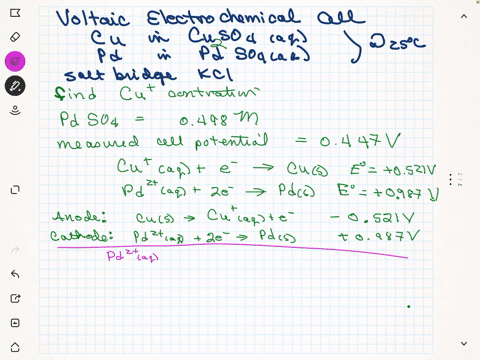 Voltaic Electrochemical Cell
Cu in Cu2SO4 (aq)
Pd in Pd SO4 (aq) } @ 25°C
salt bridge KCl
find Cu+ contration
Pd SO4 = 0.498 M
measured cell potential = 0.447 V
Cu+ (aq) + e- → Cu(s) E° = +0.521V
Pd2+(aq) + 2e- → Pd(s) E° = +0.987 V
Anode: Cu(s) → Cu+(aq) + e- - 0.521V
Cathode: Pd2+(aq) + 2e- → Pd(s) + 0.987V
Pd2+(aq)